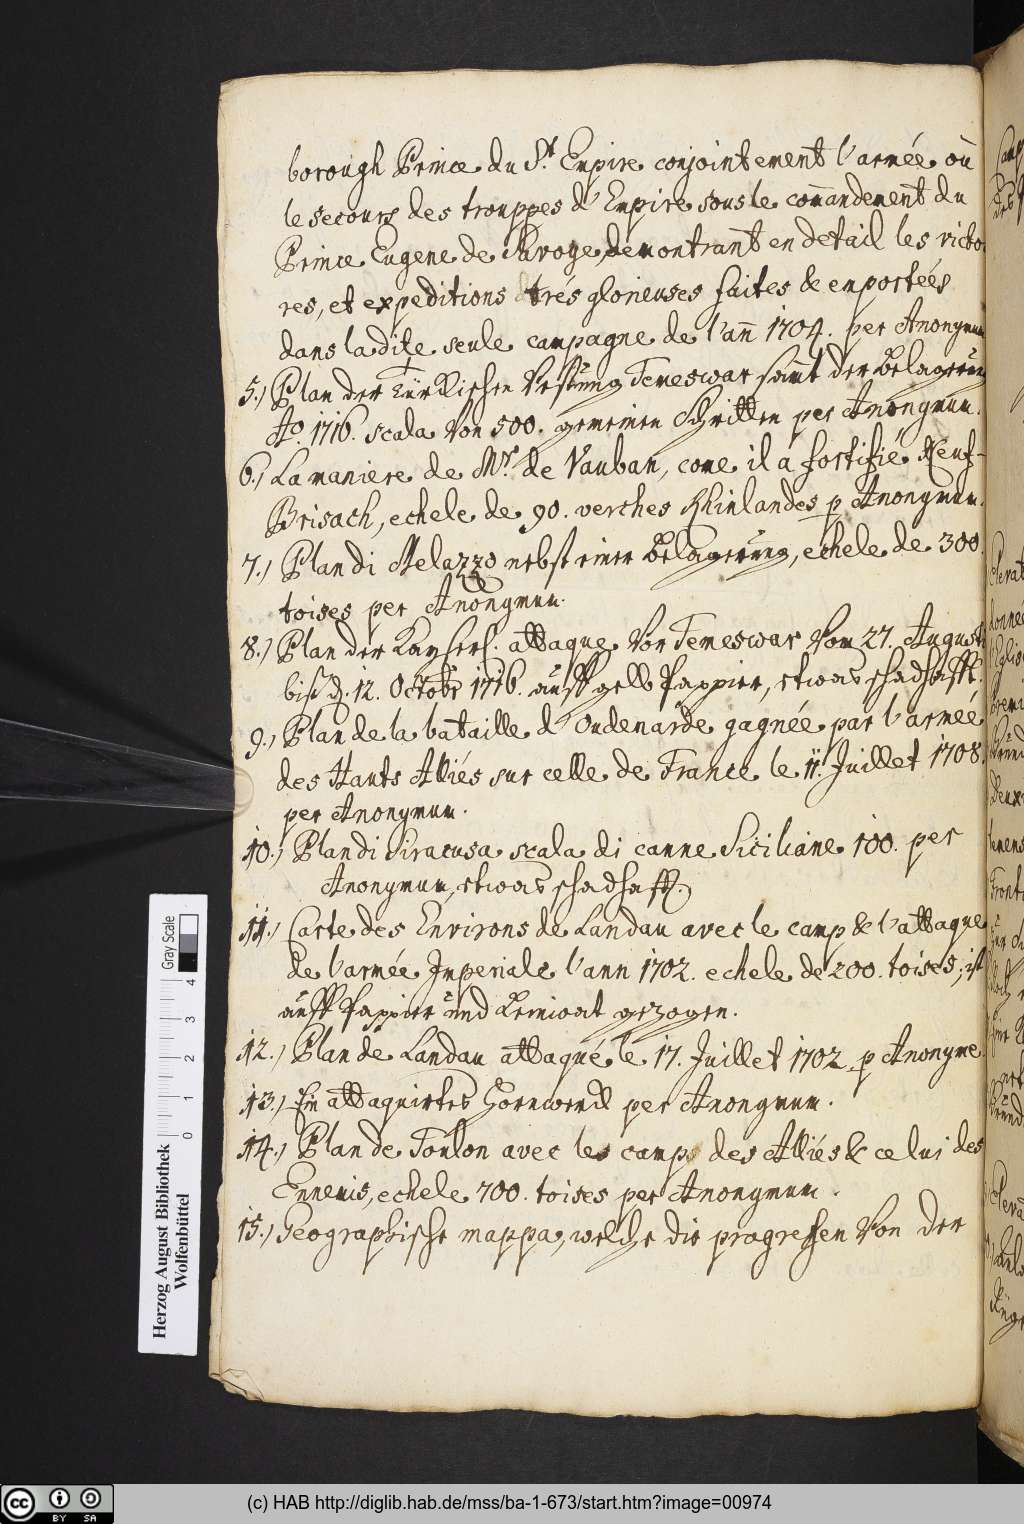 borough Prince du St. Empire conjointement l'armée où
le secours des trouppes d'Empire sous le com̄andement du
Prince Eugene de Savoye, demontrant en detail les victoi
res, et expeditions trés glorieuses faites & enportées
dans la dite seule campagne de l'an̄ 1704. per Anonymum
5.) Plan der Türkischen Vestung Temeswar sam̄t der Belagerung
Ao. 1716. scala von 500. gemeinen Schritten per Anonymum.
6.) La maniere de Mr. de Vauban, com̄e il a fortifié Neuf-
Brisach, echele de 90. verches Rhinlandes p Anonymum.
7.) Plan di Melazzo nebst einer Belagerung, echele de 300.
toises per Anonymum.
8.) Plan der Kayserl. attaque vor Temeswar vom 27. Augusti
biß d. 12. Octobr 1716. auff gelb Pappier, etwas schadhafft.
9.) Plan de la bataille d'Oudenarde gagnée par l'armée
des Hauts Alliés sur celle de France le 11. Juillet 1708.
per Anonymum.
10.) Plan di Siracusa scala di canne Siciliane 100. per
Anonymum, etwas schadhafft.
11.) Carte des Environs de Landau avec le camp & l'attaque
de l'armée Imperiale l'ann 1702. echele de 200. toises, ist
auff Pappier und Leinwat gezogen.
12.) Plan de Landau attaqué le 17. Juillet 1702 p Anonyme.
13.) Ein attaquirtes Hornwerck per Anonymum.
14.) Plan de Toulon avec les camps des Alliés & celui des
Ennemis, echele 700. toises per Anonymum.
15.) Geographische mappa, welche die progressen von der
Herzog August Bibliothek
Wolfenbüttel
Gray Scale
0 1 2 3 4
cc BY SA
(c) HAB http://diglib.hab.de/mss/ba-1-673/start.htm?image=00974